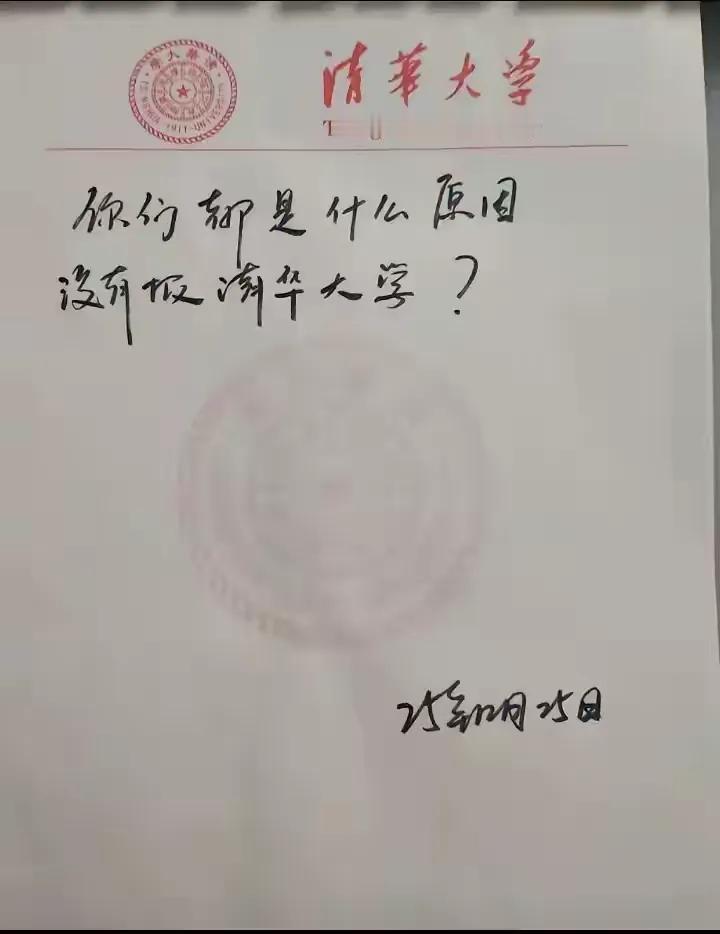 清華大学
你们都是什么原因
没有报清华大学?
25年12月25日